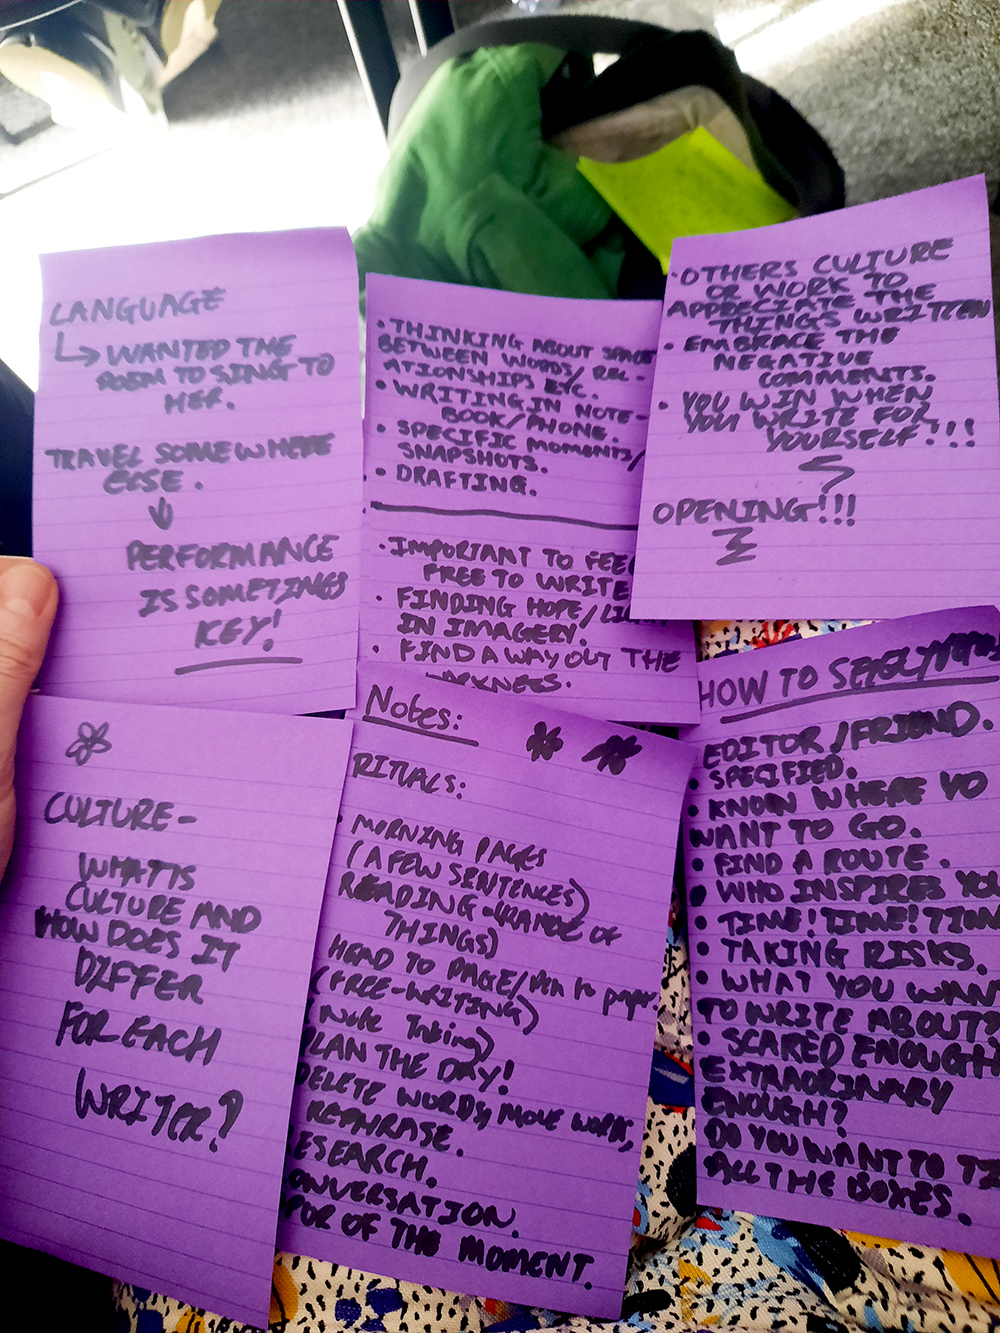 LANGUAGE
WANTED THE
POEM TO SING TO
HER.
TRAVEL SOMEWHERE
ELSE.
PERFORMANCE
IS SOMETINGS
KEY!
• THINKING ABOUT SPACE
BETWEEN WORDS/REL-
ATIONSHIPS ETC.
• WRITING IN NOTE-
BOOK/PHONE.
• SPECIFIC MOMENTS/
SNAPSHOTS.
• DRAFTING.
• IMPORTANT TO FEEL
FREE TO WRITE
• FINDING HOPE/LIGHT
IN IMAGERY.
• FIND A WAY OUT THE
DARKNESS.
• OTHERS CULTURE
OR WORK TO
APPRECIATE THE
THINGS WRITTEN
• EMBRACE THE
NEGATIVE
COMMENTS.
• YOU WIN WHEN
YOU WRITE FOR
YOURSELF!!!
OPENING!!!
CULTURE-
WHAT IS
CULTURE AND
HOW DOES IT
DIFFER
FOR EACH
WRITER?
Notes:
RITUALS:
MORNING PAGES
(A FEW SENTENCES)
READING - (RANGE OF
THINGS)
HEAD TO PAGE/Pen to paper.
(FREE-WRITING)
Note Taking)
PLAN THE DAY!
DELETE WORDS, MOVE WORDS,
REPHRASE.
RESEARCH.
CONVERSATION.
SPUR OF THE MOMENT.
HOW TO
EDITOR/FRIEND.
• SPECIFIED.
• KNOW WHERE YO
WANT TO GO.
• FIND A ROUTE.
• WHO INSPIRES YOU
• TIME! TIME! TIM
• TAKING RISKS.
• WHAT YOU WANT
TO WRITE ABOUT?
• SCARED ENOUGH
EXTRAORINARY
ENOUGH?
DO YOU WANT TO TI
ALL THE BOXES.